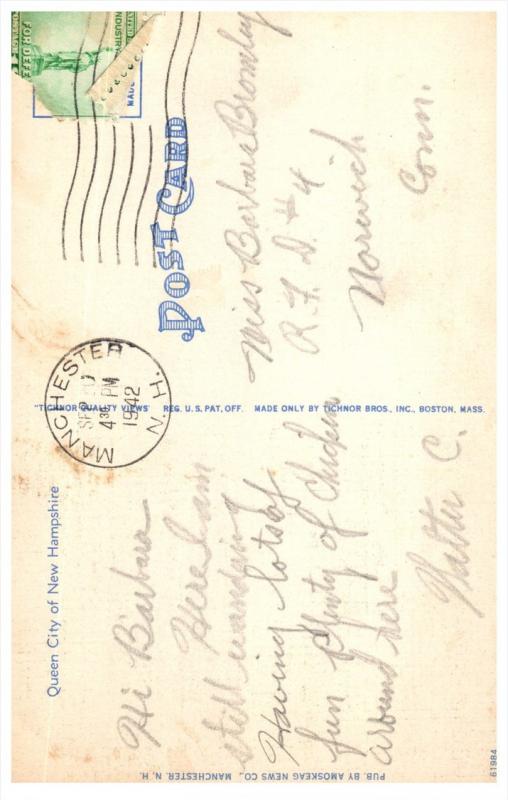 Queen City of New Hampshire
Hi Barbara
Here I am
still wandering
Having lots of
fun Plenty of Chicken
around here
Walter C.
PUB. BY AMOSKEAG NEWS CO., MANCHESTER, N. H.
"TICHNOR QUALITY VIEWS" REG. U. S. PAT. OFF. MADE ONLY BY TICHNOR BROS., INC., BOSTON, MASS.
MANCHESTER N.H.
SEP
4 30 PM
1942
POST CARD
MADE
FOR DEFE
INDUSTRY
POSTAGE
Miss Barbara Bromley
R.F.D. #4
Norwich
Conn.
61984